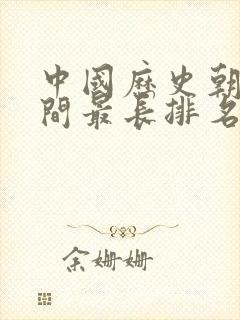 中國歷史朝
間最長排名
余姍姍